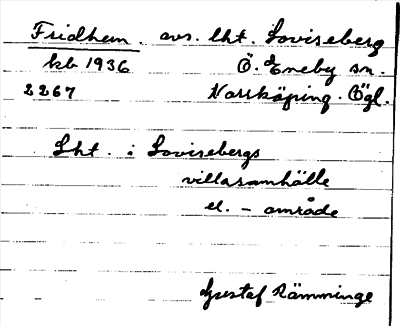 Fridhem. avs. lht. Loviseberg
kb 1936 Ö. Eneby sn.
2267 Norrköping. Ögl.
Lht. i Lovisebergs
villasamhälle
el. - område
Gustaf Rämminge